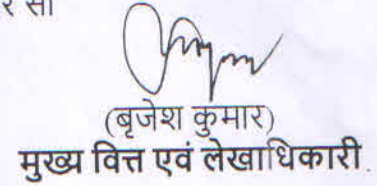 र सा
(बृजेश कुमार)
मुख्य वित्त एवं लेखाधिकारी